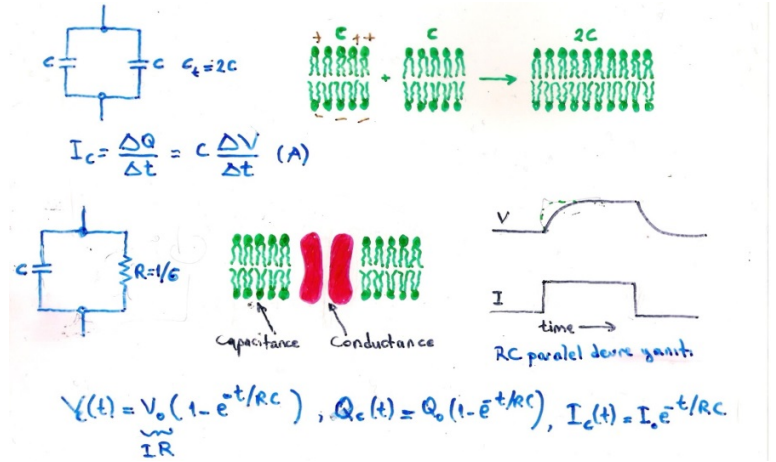 + C ++
C
2C
C
C
C_t = 2C
+
- - -
I_C = ΔQ/Δt = C ΔV/Δt (A)
C
R=1/G
V
I
time →
Capacitance
Conductance
RC paralel devre yanıtı
V_c(t) = V₀(1-e^-t/RC), Q_c(t) = Q₀(1-e^-t/RC), I_c(t) = I₀e^-t/RC
IR